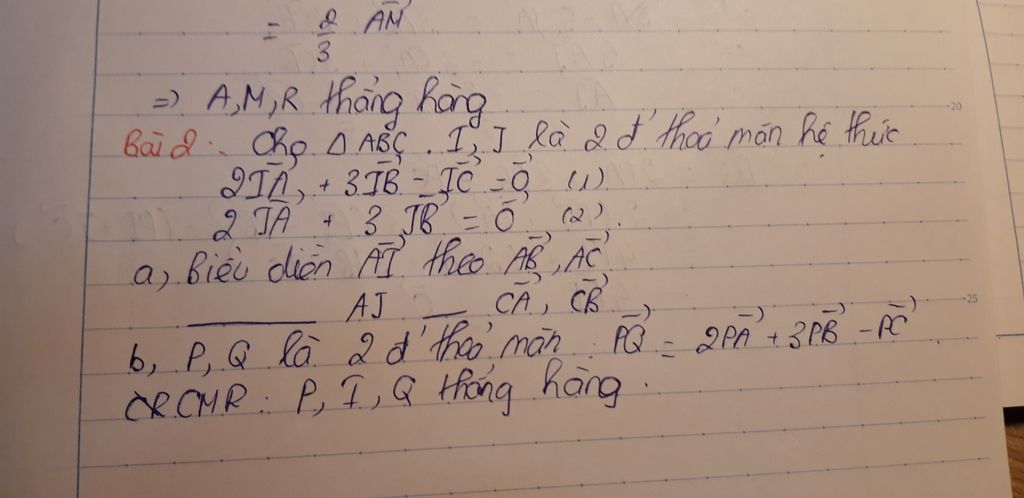 = 2/3 AM
=> A, M, R thẳng hàng
20
Bài 2: Cho Δ ABC. I, J là 2 đ' thoả mãn hệ thức
2IA + 3IB - IC = O (1)
2JA + 3JB = O (2).
a, Biểu diễn AI theo AB, AC
25
____ AJ __ CA, CB
b, P, Q là 2 đ' thoả mãn: PQ = 2PA + 3PB - PC
CMR: P, I, Q thẳng hàng.